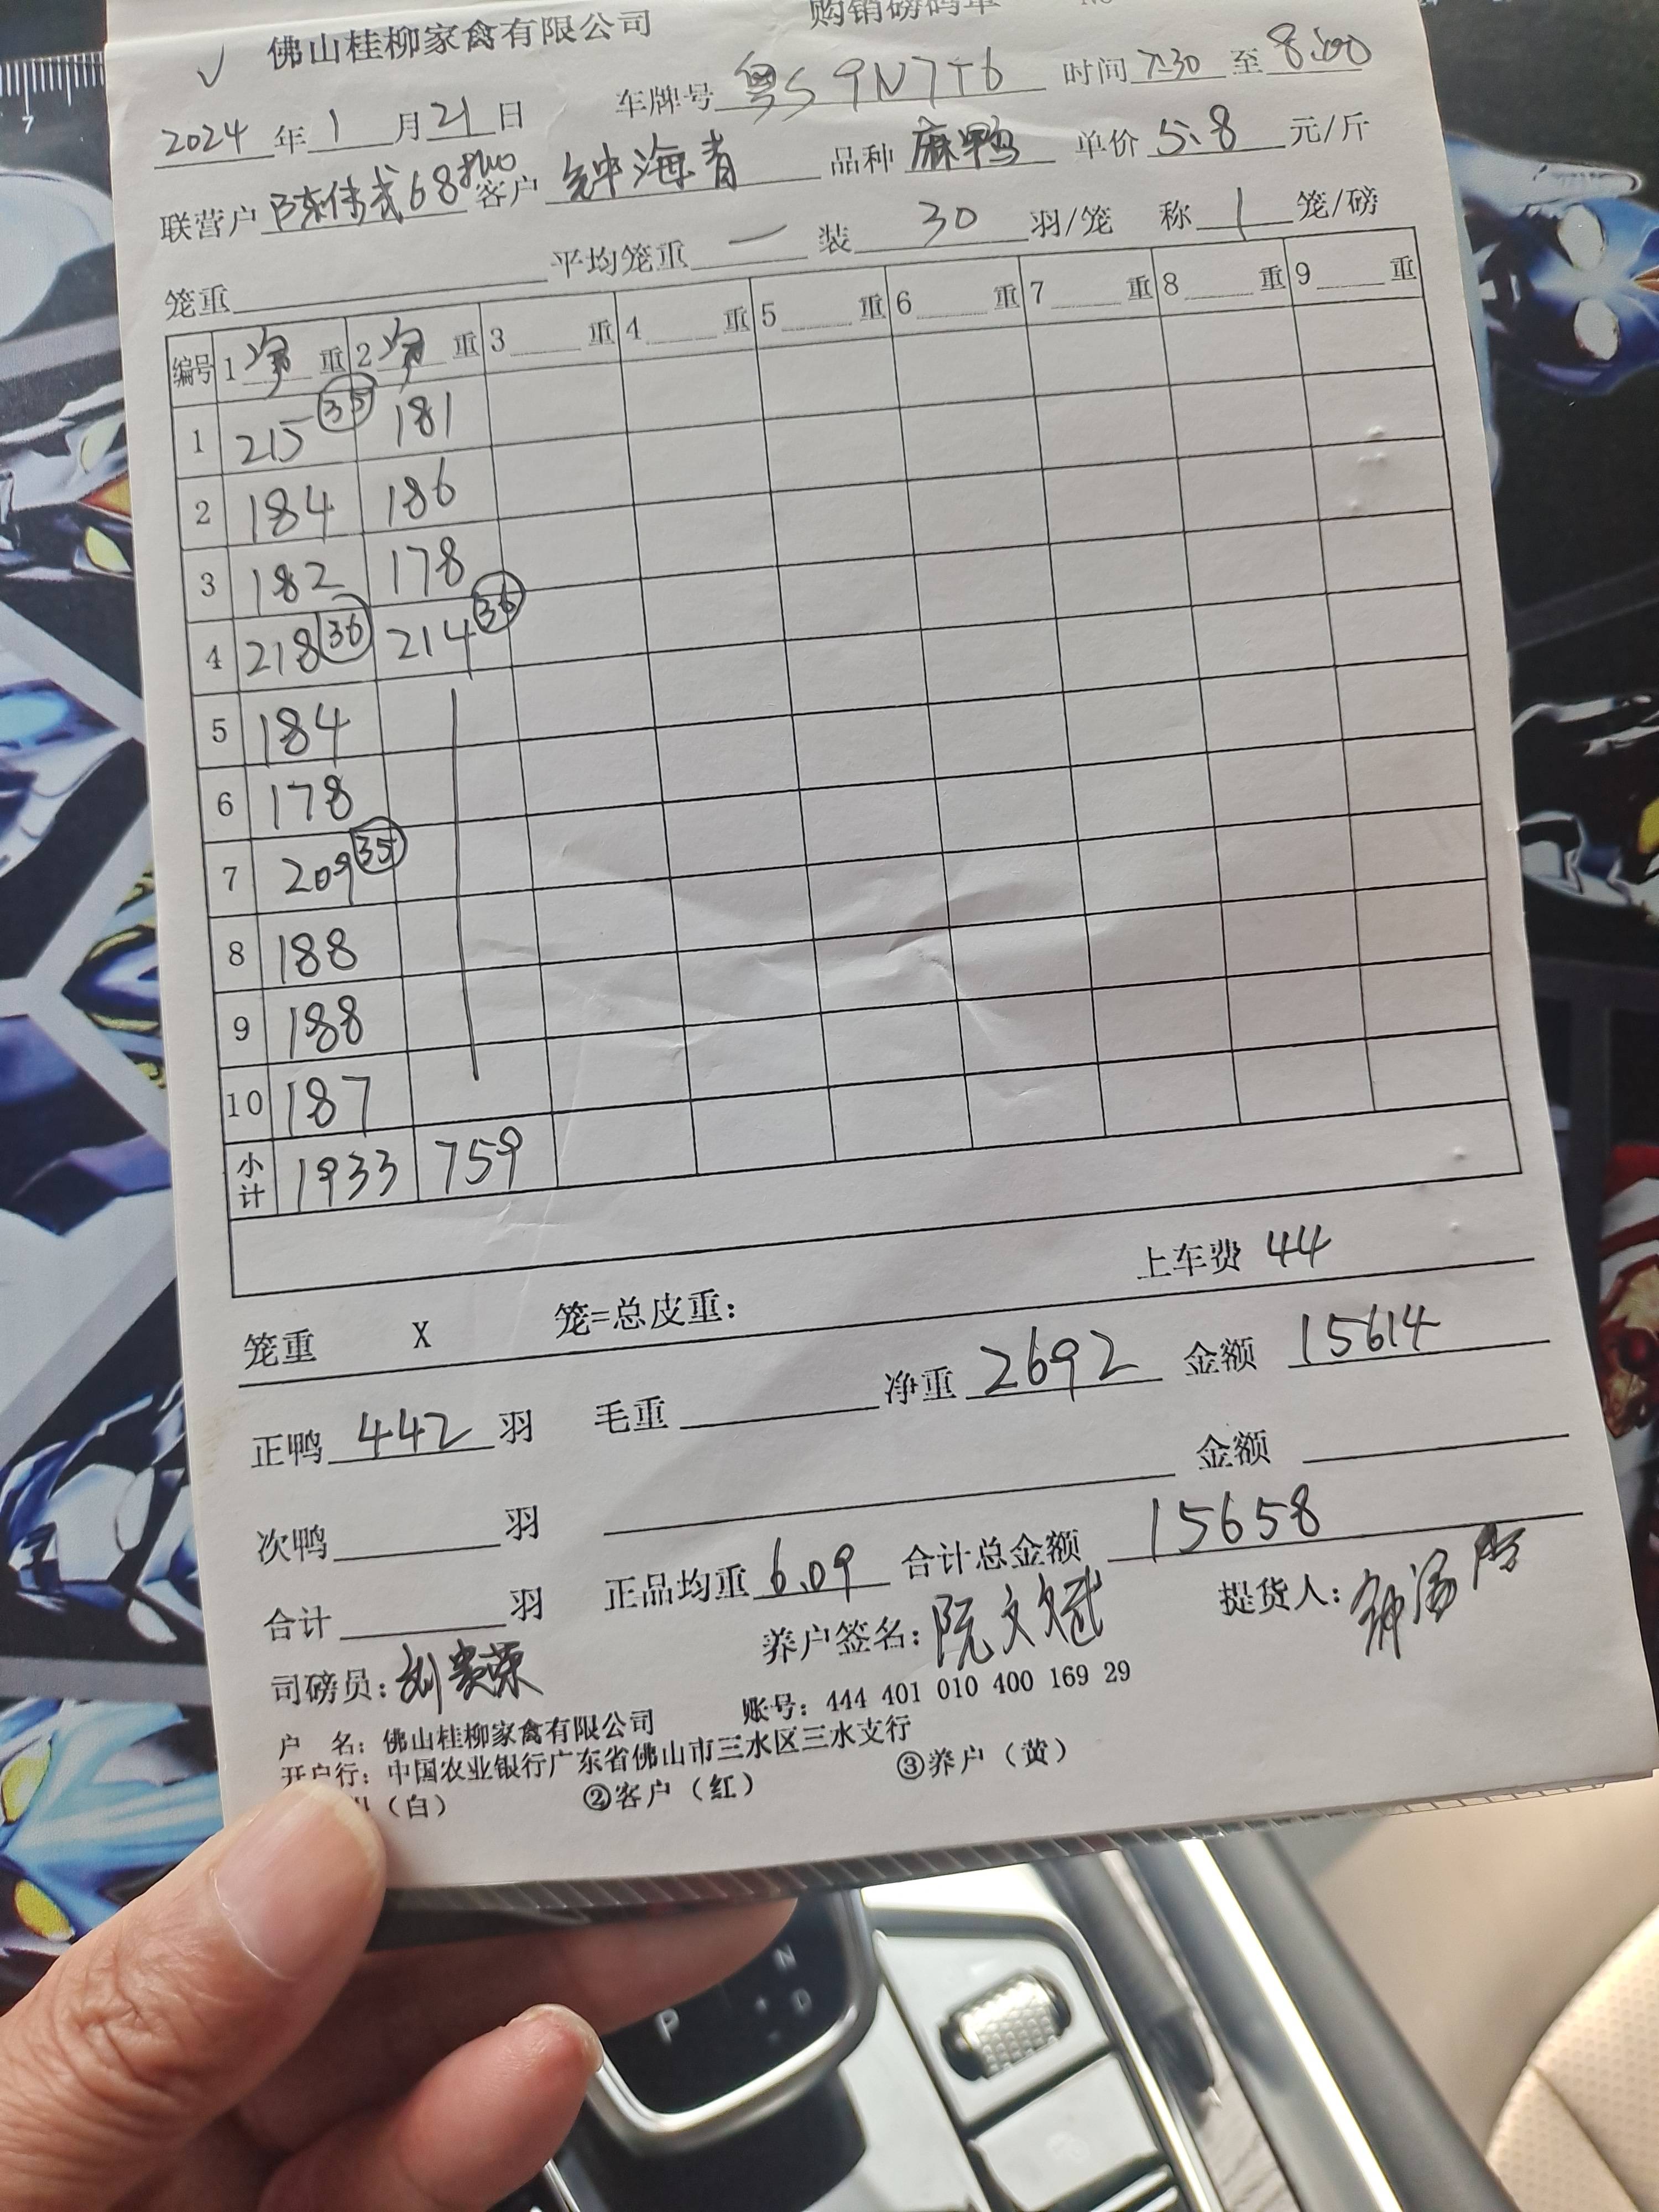 佛山桂柳家禽有限公司 购销磅码单
2024年1月21日 车牌号 粤S 9N7T6 时间7:30至8:00
联营户 陈伟武68 客户 钟海青 品种 麻鸭 单价 5.8 元/斤
笼重 平均笼重 一 装 30 羽/笼 称 1 笼/磅
编号 1 净 重 2 净 重 3 重 4 重 5 重 6 重 7 重 8 重 9 重
1 215 35 181
2 184 186
3 182 178
4 218 36 214 36
5 184
6 178
7 209 35
8 188
9 188
10 187
小计 1933 759
上车费 44
笼重 X 笼=总皮重:
正鸭 442 羽 毛重 净重 2692 金额 15614
次鸭 羽 金额
合计 羽 正品均重 6.09 合计总金额 15658
司磅员: 养户签名: 阮文斌 提货人:
户 名: 佛山桂柳家禽有限公司 账号: 444 401 010 400 169 29
开户行: 中国农业银行广东省佛山市三水区三水支行
(白) ②客户(红) ③养户(黄)
P N D
7